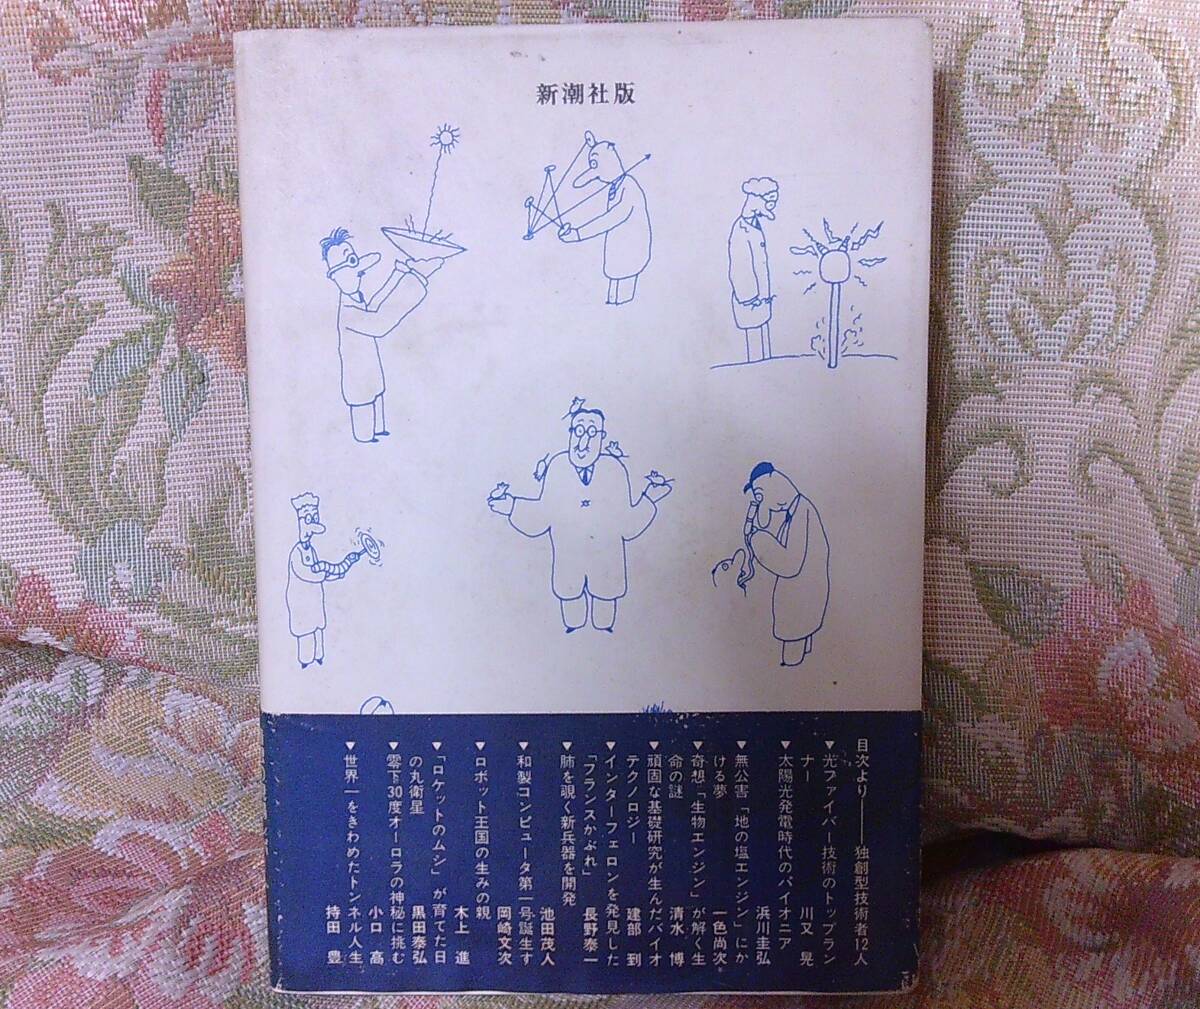 新潮社版
目次より――独創型技術者12人
▼光ファイバー技術のトップラン
ナー 川又 晃
▼太陽光発電時代のパイオニア
浜川圭弘
▼無公害「地の塩エンジン」にか
ける夢 一色尚次
▼奇想「生物エンジン」が解く生
命の謎 清水 博
▼頑固な基礎研究が生んだバイオ
テクノロジー 建部 到
▼インターフェロンを発見した
「フランスかぶれ」 長野泰一
▼肺を覗く新兵器を開発
池田茂人
▼和製コンピュータ第一号誕生す
岡崎文次
▼ロボット王国の生みの親
木上 進
▼「ロケットのムシ」が育てた日
の丸衛星 黒田泰弘
▼零下30度オーロラの神秘に挑む
小口 高
▼世界一をきわめたトンネル人生
持田 豊